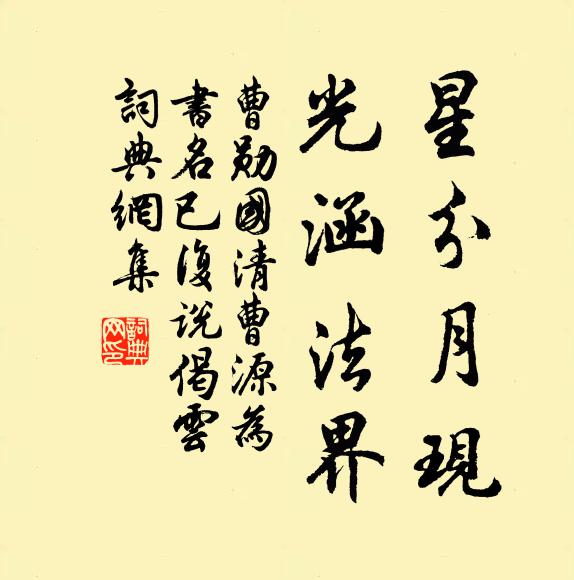 星分月現
光涵法界
曹勛國清曹源為
書名已復说偈雲
詞典網集
詞典網印